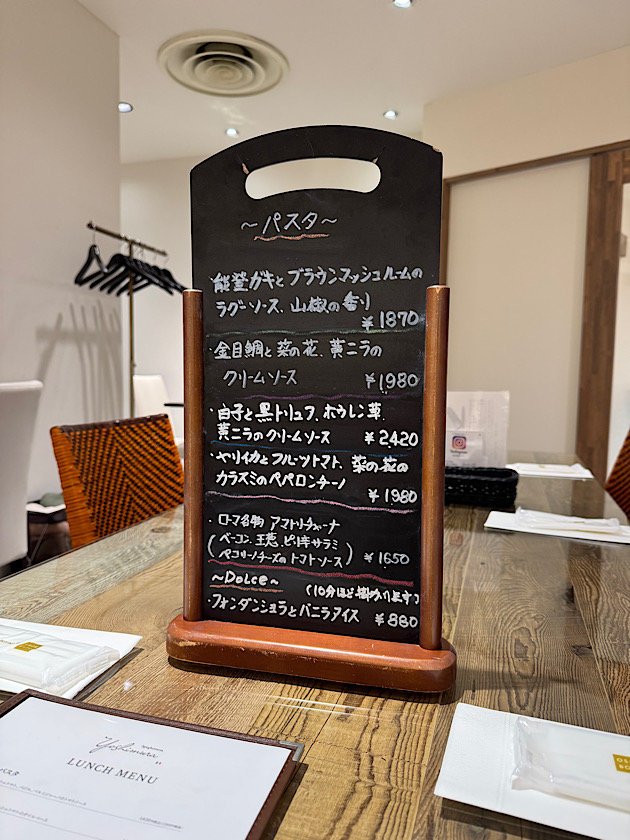 ～パスタ～
・能登ガキとブラウンマッシュルームの
ラグーソース、山椒の香り
¥1870
・金目鯛と菜の花、黄ニラの
クリームソース ¥1,980
・白子と黒トリュフ、ホウレン草
黄ニラのクリームソース ¥2,420
・ヤリイカとフルーツトマト、菜の花の
カラスミのペペロンチーノ
¥1980
・ローマ名物 アマトリチャーナ
(ベーコン、玉葱 ピリ辛サラミ
ペコリーノチーズのトマトソース) ¥1650
～Dolce～
(10分ほど掛かります)
・フォンダンショコラとバニラアイス ¥880
Yoshimura
LUNCH MENU